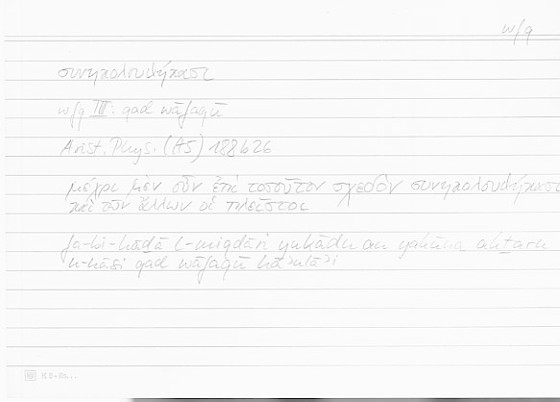 w/q
συνηκολουθήκασι
w/q III: qad wāfaqū
Arist. Phys. (A5) 188b26
μέχρι μὲν οὖν ἐπὶ τοσοῦτον σχεδὸν συνηκολουθήκασι
καὶ τῶν ἄλλων οἱ πλεῖστοι
fa-bi-hāḏā l-miqdāri yakādu an yakūna akṯaru
n-nāsi qad wāfaqū hāʾulāʾi